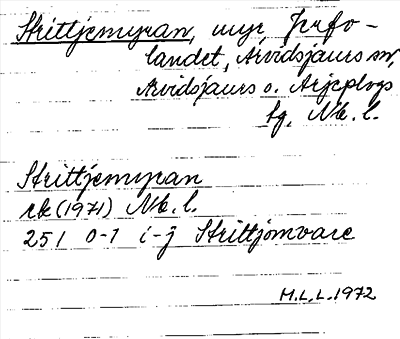 Strittjemyran, myr Jvrfo-
landet, Arvidsjaurs sn,
Arvidsjaurs o. Arjeplogs
tg, Nb. l.
Strittjemyran
rk (1971) Nb. l.
251 0-1 i-j Strittjomvare
M.L.L. 1972